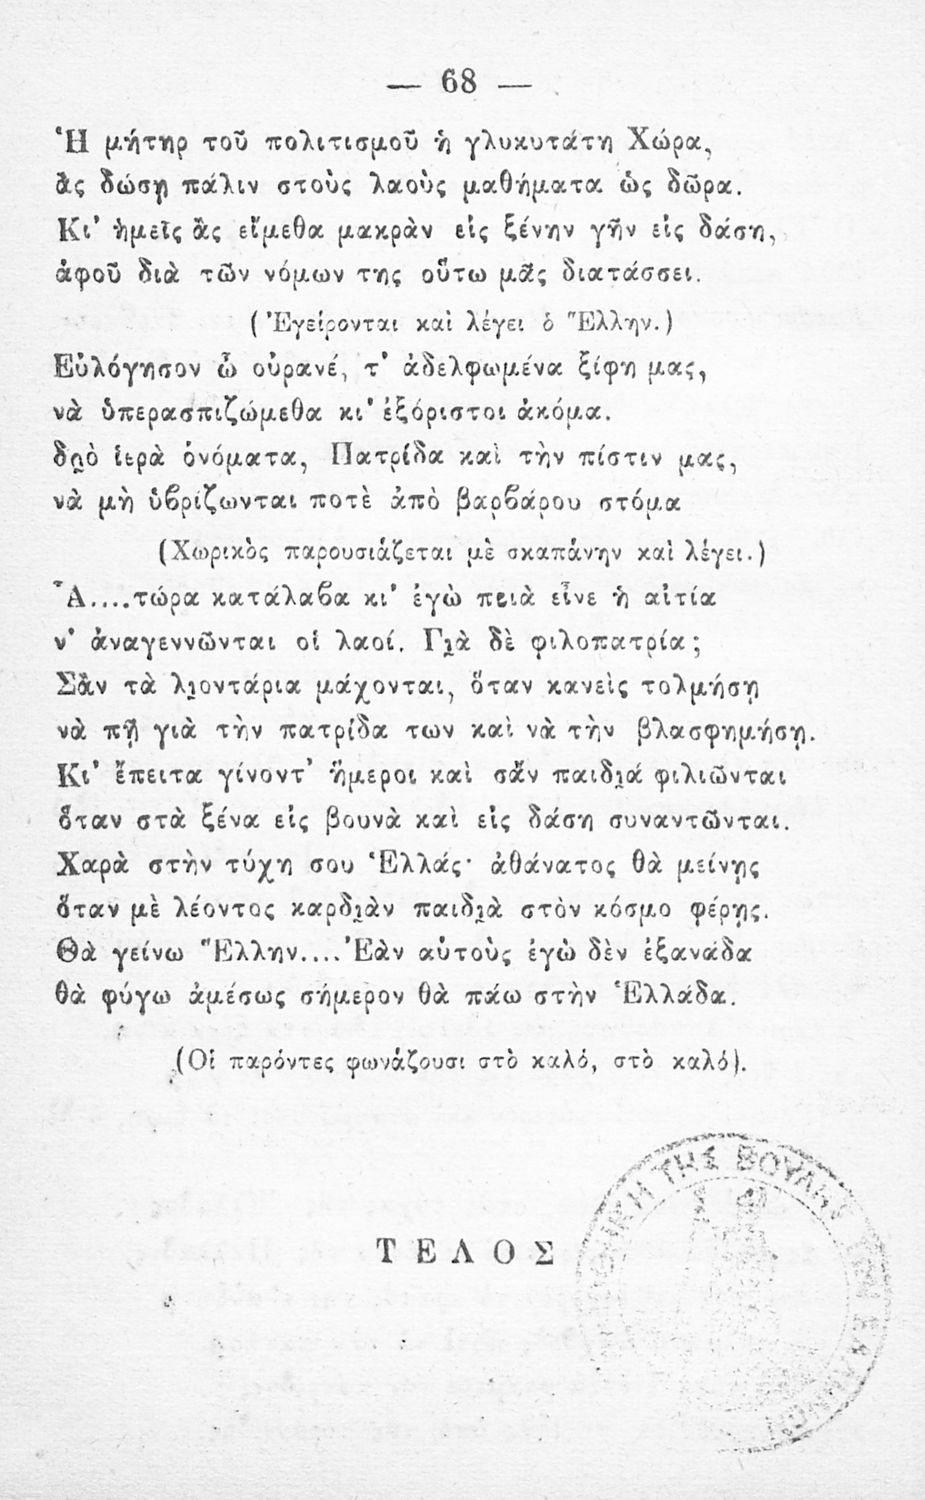 — 68 —
Ἡ μήτηρ τοῦ πολιτισμοῦ ἡ γλυκυτάτη Χώρα,
ἂς δώσῃ πάλιν στοὺς λαοὺς μαθήματα ὡς δῶρα.
Κι' ἡμεῖς ἂς εἴμεθα μακρὰν εἰς ξένην γῆν εἰς δάση,
ἀφοῦ διὰ τῶν νόμων της οὕτω μᾶς διατάσσει.
(Ἐγείρονται καὶ λέγει ὁ Ἕλλην.)
Εὐλόγησον ὦ οὐρανέ, τ' ἀδελφωμένα ξίφη μας,
νὰ ὑπερασπιζώμεθα κι' ἐξόριστοι ἀκόμα.
δῃὸ ἱερὰ ὀνόματα, Πατρίδα καὶ τὴν πίστιν μας,
νὰ μὴ ὑβρίζωνται ποτὲ ἀπὸ βαρβάρου στόμα
(Χωρικὸς παρουσιάζεται μὲ σκαπάνην καὶ λέγει.)
Ἆ....τώρα κατάλαβα κι' ἐγὼ πειὰ εἶνε ἡ αἰτία
ν' ἀναγεννῶνται οἱ λαοί. Γι̯ὰ δὲ φιλοπατρία;
Σὰν τὰ λι̯οντάρια μάχονται, ὅταν κανεὶς τολμήσῃ
νὰ πῇ γιὰ τὴν πατρίδα των καὶ νὰ τὴν βλασφημήσῃ.
Κι' ἔπειτα γίνοντ' ἥμεροι καὶ σἂν παιδι̯ά φιλιῶνται
ὅταν στὰ ξένα εἰς βουνὰ καὶ εἰς δάση συναντῶνται.
Χαρὰ στὴν τύχη σου Ἑλλάς· ἀθάνατος θὰ μείνῃς
ὅταν μὲ λέοντος καρδι̯ὰν παιδι̯ὰ στὸν κόσμο φέρῃς.
Θὰ γείνω Ἕλλην.... Ἐὰν αὐτοὺς ἐγὼ δὲν ἐξανάδα
θὰ φύγω ἀμέσως σήμερον θὰ πάω στὴν Ἑλλάδα.
(Οἱ παρόντες φωνάζουσι στὸ καλό, στὸ καλό).
ΤΕΛΟΣ
ΤΗΣ ΒΟΥΛΗΣ ΤΩΝ ΕΛΛΗΝΩΝ